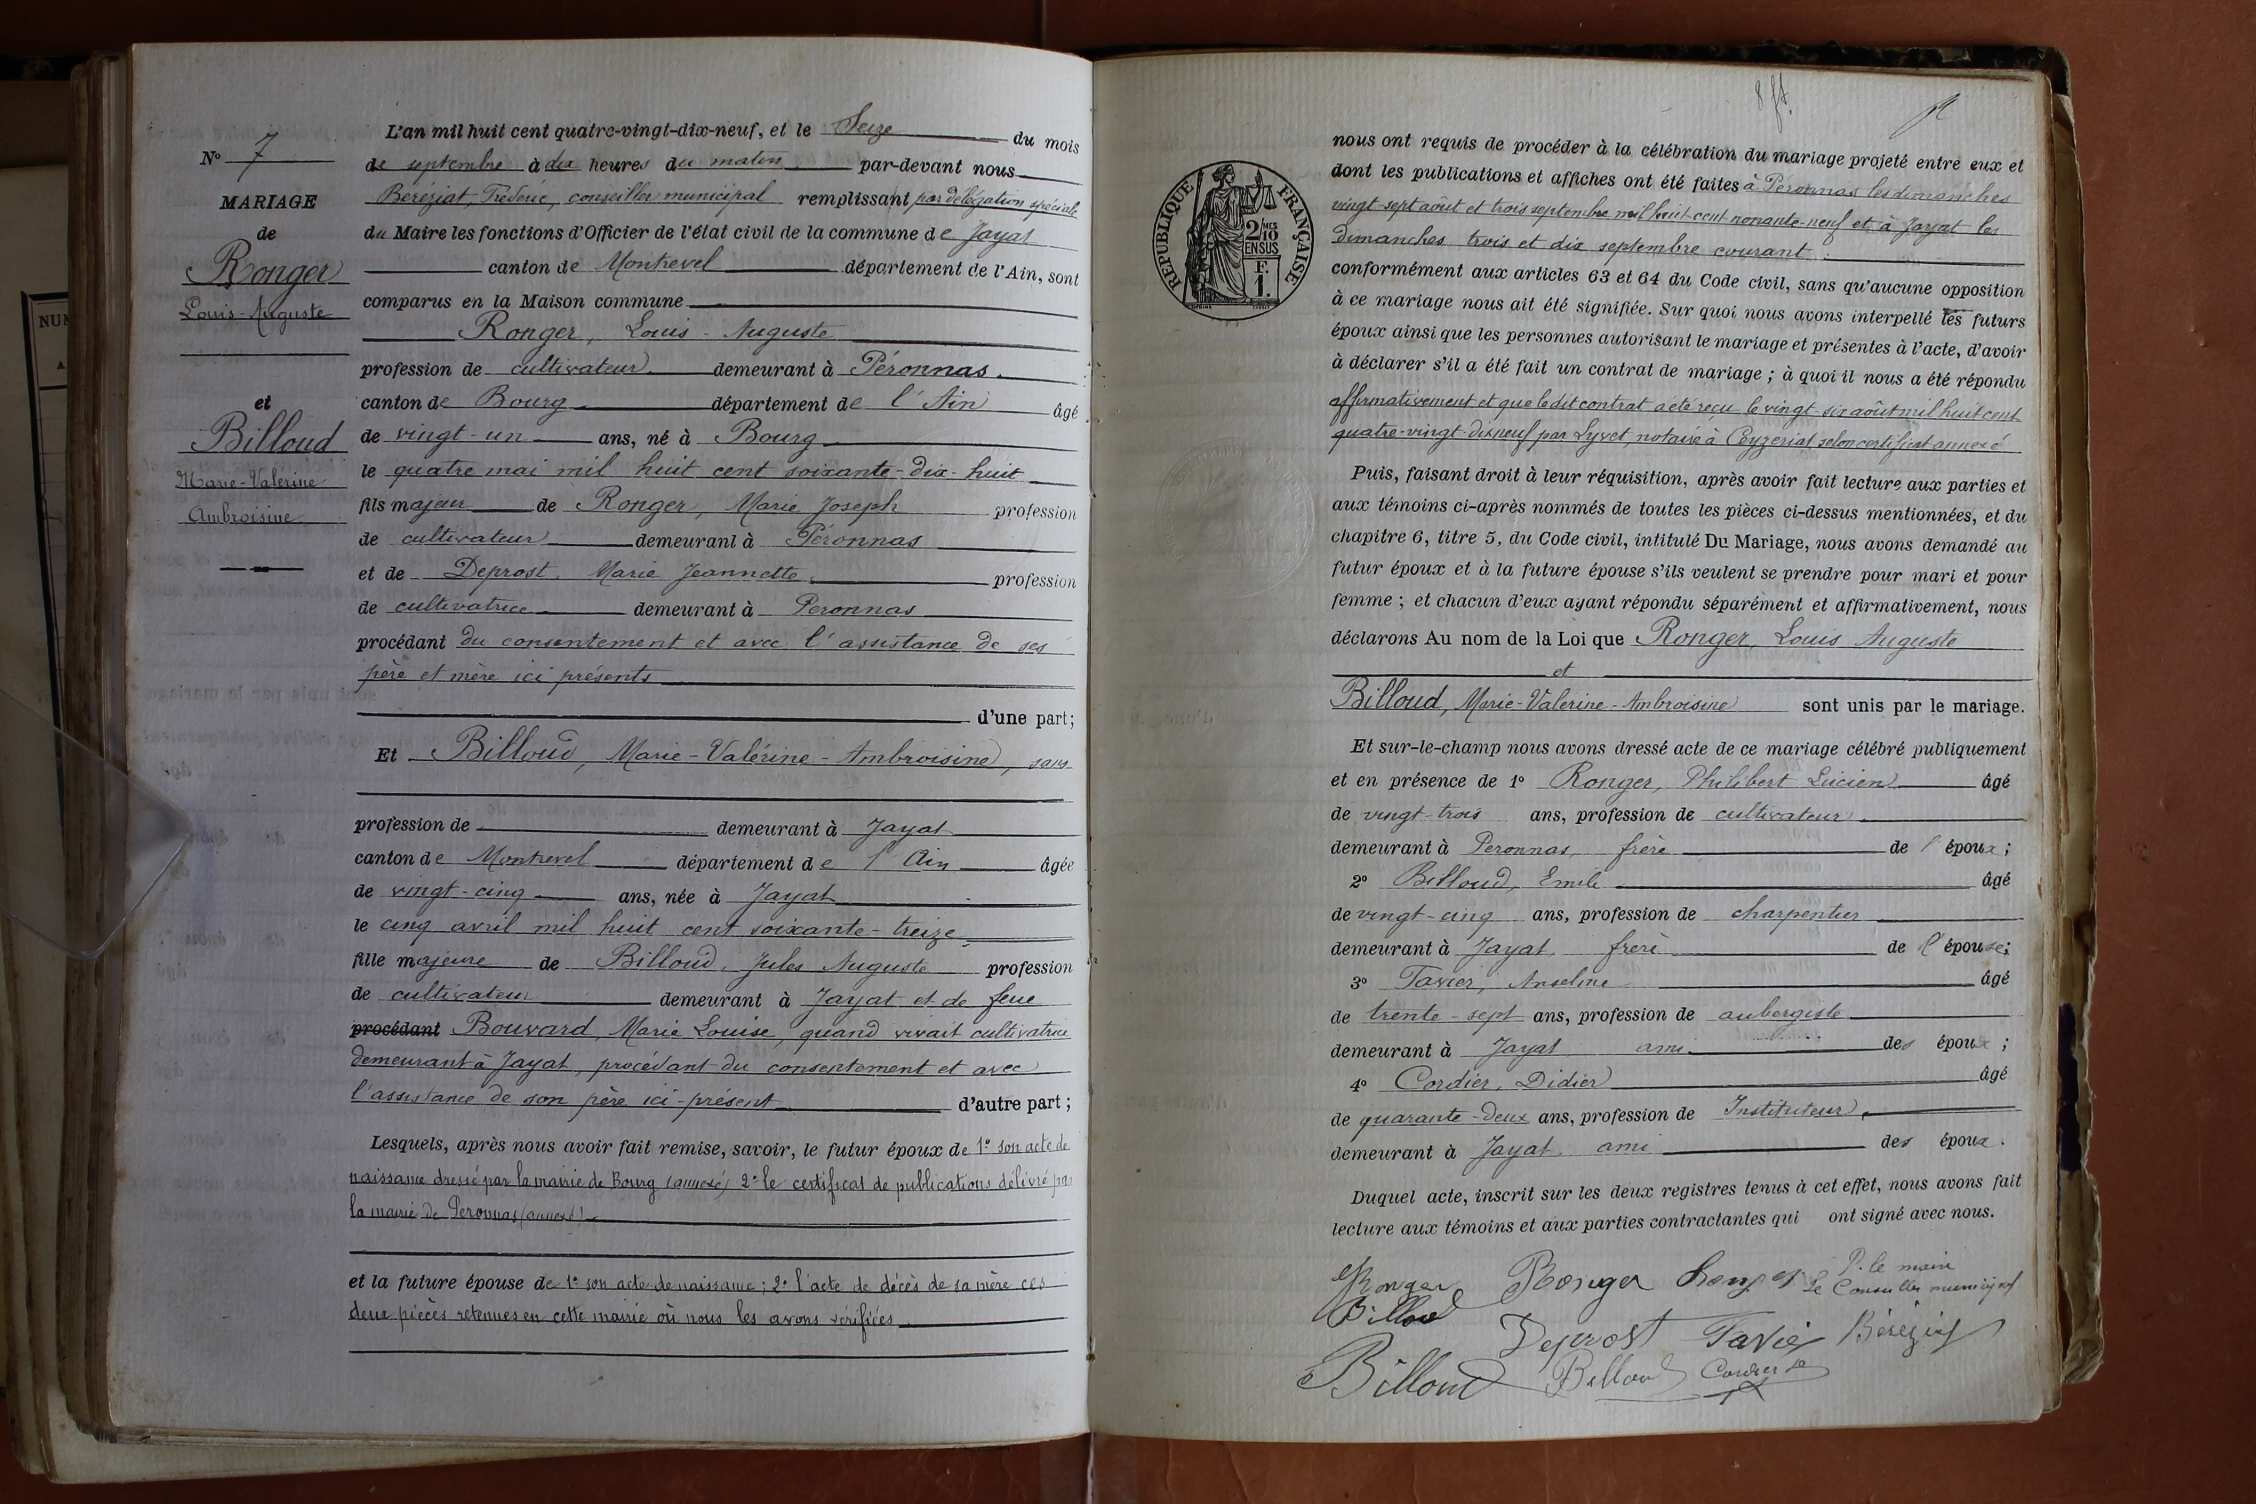 N° 7
MARIAGE
de
Ronger
Louis-Auguste
et
Billoud
Marie-Valérine
Ambroisine
L'an mil huit cent quatre-vingt-dix-neuf, et le Seize du mois
de septembre à dix heures du matin par-devant nous
Béréziat, Frédéric, conseiller municipal remplissant par délégation spéciale
du Maire les fonctions d'Officier de l'état civil de la commune de Jayat
canton de Montrevel département de l'Ain, sont
comparus en la Maison commune
Ronger, Louis-Auguste
profession de cultivateur demeurant à Péronnas
canton de Bourg département de l'Ain âgé
de vingt-un ans, né à Bourg
le quatre mai mil huit cent soixante-dix-huit
fils majeur de Ronger, Marie Joseph profession
de cultivateur demeurant à Péronnas
et de Deprost, Marie Jeannette, profession
de cultivatrice demeurant à Peronnas
procédant du consentement et avec l'assistance de ses
père et mère ici présents
d'une part;
Et Billoud, Marie-Valérine-Ambroisine, sans
profession de demeurant à Jayat
canton de Montrevel département de l'Ain âgée
de vingt-cinq ans, née à Jayat
le cinq avril mil huit cent soixante-treize,
fille majeure de Billoud, Jules Auguste profession
de cultivateur demeurant à Jayat et de feue
procédant Bouvard, Marie Louise, quand vivait cultivatrice
demeurant à Jayat, procédant du consentement et avec
l'assistance de son père ici-présent d'autre part;
Lesquels, après nous avoir fait remise, savoir, le futur époux de 1° son acte de
naissance dressé par la mairie de Bourg (annexé) 2° le certificat de publications délivré par
la mairie de Peronnas (annexé)
et la future épouse de 1° son acte de naissance; 2° l'acte de décès de sa mère ces
deux pièces retenues en cette mairie où nous les avons vérifiées
8 ft.
RÉPUBLIQUE FRANÇAISE
2/10 MES
EN SUS
F.
1.
nous ont requis de procéder à la célébration du mariage projeté entre eux et
dont les publications et affiches ont été faites à Péronnas les dimanches
vingt sept août et trois septembre mil huit cent nonante-neuf et à Jayat les
dimanches trois et dix septembre courant
conformément aux articles 63 et 64 du Code civil, sans qu'aucune opposition
à ce mariage nous ait été signifiée. Sur quoi nous avons interpellé les futurs
époux ainsi que les personnes autorisant le mariage et présentes à l'acte, d'avoir
à déclarer s'il a été fait un contrat de mariage; à quoi il nous a été répondu
affirmativement et que le dit contrat a été reçu le vingt six août mil huit cent
quatre-vingt-dix neuf par Lyvet notaire à Ceyzeriat selon certificat annexé
Puis, faisant droit à leur réquisition, après avoir fait lecture aux parties et
aux témoins ci-après nommés de toutes les pièces ci-dessus mentionnées, et du
chapitre 6, titre 5, du Code civil, intitulé Du Mariage, nous avons demandé au
futur époux et à la future épouse s'ils veulent se prendre pour mari et pour
femme; et chacun d'eux ayant répondu séparément et affirmativement, nous
déclarons Au nom de la Loi que Ronger, Louis Auguste
et
Billoud, Marie-Valerine-Ambroisine sont unis par le mariage.
Et sur-le-champ nous avons dressé acte de ce mariage célébré publiquement
et en présence de 1° Ronger, Philibert Lucien âgé
de vingt-trois ans, profession de cultivateur
demeurant à Peronnas, frère de l'époux;
2° Billoud, Emile âgé
de vingt-cinq ans, profession de charpentier
demeurant à Jayat frère de l'épouse;
3° Tavier, Anselme âgé
de trente-sept ans, profession de aubergiste
demeurant à Jayat ami des époux;
4° Cordier, Didier âgé
de quarante-deux ans, profession de Instituteur,
demeurant à Jayat ami des époux.
Duquel acte, inscrit sur les deux registres tenus à cet effet, nous avons fait
lecture aux témoins et aux parties contractantes qui ont signé avec nous.
Ronger Ronger Ronger P. le maire
Billoud Le Conseiller municipal
Deprost Tavier Béréziat
Billoud Billoud Cordier